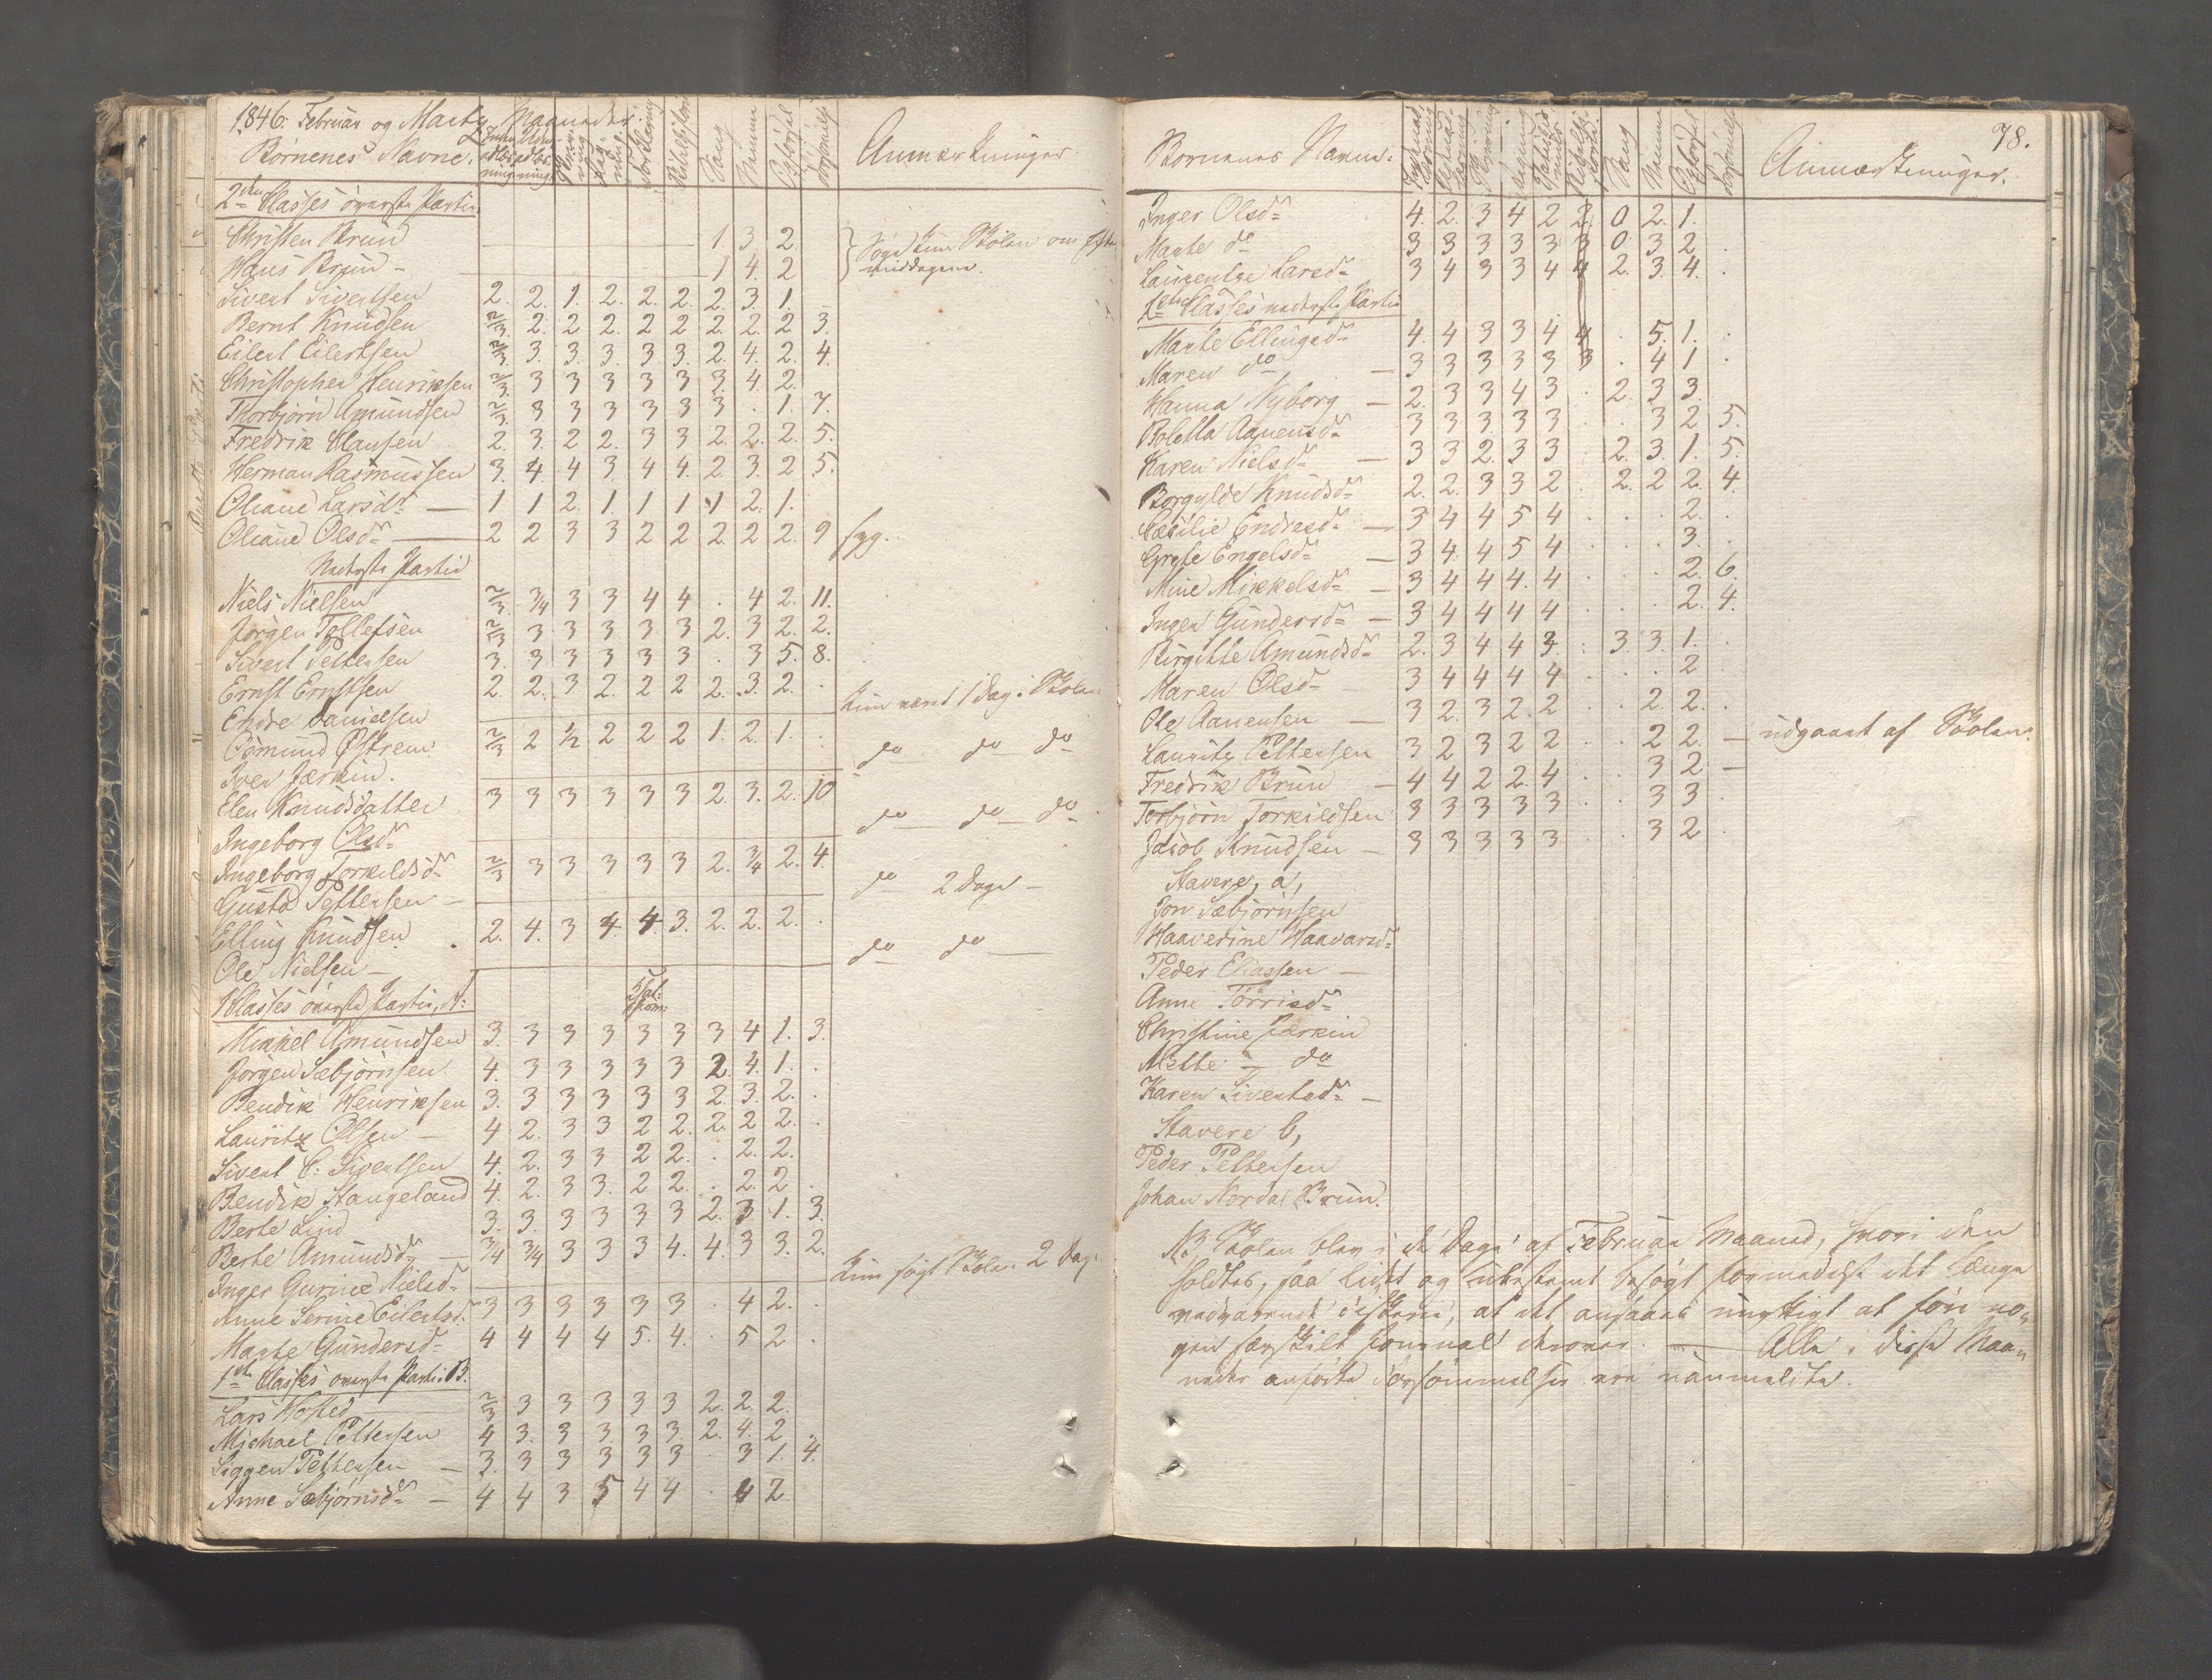 1846. Februar og Marts Maaneder.
Børnenes Navne. Sang Anmærkninger.
2den Classes øverste Partie.
Christen Brun 1 3. 2. Søge kun Skolen om
Hans Brun 1 4. 2 middagene.
Sivert Sivertsen 2. 2. 1. 2. 2. 2. 2. 3. 1.
Bernt Knudsen 2/3. 2. 2 2. 2 2 2. 2. 2 3.
Eilert Eilertsen 2/3. 3. 3. 3. 3. 3. 2. 4. 2. 4.
Christopher Henriksen 2/3. 3 3 3 3 3 3. 4. 2.
Thorbjørn Amundsen 2/3. 3 3 3 3 3 3 . 1. 7.
Fredrik Clausen 2. 3. 2 2. 3 3 2. 2. 2. 5.
Herman Rasmussen 3. 4. 4 3 4 4. 2 3. 2 5.
Oliane Larsdr 1 1 2. 1. 1 1 1 2. 1.
Oliane Olsdr 2 2 3 3 2 2 2. 2. 2. 9 syg.
Nederste Partie
Niels Nielsen 2/3. 3/4 3 3 4 4 . 4 2. 11.
Jørgen Tollefsen 2/3 3 3 3 3 3 2. 3 2. 2.
Sivert Pettersen 3. 3 3 3 3 3 . 3 5. 8.
Ernst Ernstsen 2. 2. 3 2. 2 2 2. 3. 2.
Endre Danielsen kun været 1 Dag i Skolen
Osmund Østrem 2/3 2 1/2 2 2 2 1. 2. 1.
Iver Jærkin. do do do
Elen Knudsdatter 3 3 3 3 3 3 2. 3. 2. 10
Ingeborg Olsdr do do do
Ingeborg Torkildsdr 2/3 3 3 3 3 3 2. 3/4 2. 4.
Gustad Pettersen do 2 Dage
Elling Knudsen 2. 4. 3 4. 4. 3. 2. 2. 2.
Ole Nielsen do do
Classes øverste Partie, A:
Mikkel Amundsen 3. 3 3 3 3 3 3 4 1. 3.
Jørgen Sæbjørnsen 4. 3 3 3 3 3 2. 4. 1.
Bendik Henriksen 3. 3 3 3 3 3 2. 3. 2.
Lauritz Olsen 4 2. 3 3 2 2. 2. 2 2.
Sivert C. Sivertsen 4. 2. 3 3 2 2. . 2. 2.
Bendik Stangeland 4. 2. 3 3. 2 2. . 2. 2
Berte Lind 3. 3. 3 3 3 3 2. 3 1. 3.
Berte Amundsdr 3/4 3/4 3 3 3 4. 4. 3 3. 2.
Inger Gurine Nielsdr kun søgt Skolen 2 Dage
Anne Serine Eilertsd. 3 3 3 3 3 3 . 4 2.
Marte Gundersdr 4 4 4 4 5. 4. . 5 2
1ste Classes øverste Parti: B.
Lars Hosted 2/3 3 3 3 3 3 2. 2. 2.
Michael Pettersen 4 3. 3 3 3 3. 2. 4. 2
Siggen Pettersen 3. 3 3 3 3 3 . 3 1. 4.
Anne Sæbjørnsdr 4 4 3 5 4 4 . 4 2.
78.
Børnenes Navne. Sang Anmærkninger.
Inger Olsdr 4. 2. 3 4 2 2. 0 2. 1.
Marte do 3 3 3 3 3 3 0. 3 2
Laurentze Larsdr 3 4 3 3 4 4 2. 3. 4.
1ste Classes nederste Partie
Marte Ellingsdr 4. 4 3 3 4 4 . 5. 1.
Maren do 3 3 3 3 3 3 . 4 1
Hanna Nyborg 2. 3 3 4 3 . 2. 3 3.
Boletta Aanensdr 3 3 3 3 3 . . 3 2 5.
Karen Nielsdr 3 3 2. 3 3 . 2. 3. 1. 5.
Borgylde Knudsdr 2. 2. 3 3 2 . 2. 2 2. 4.
Cæcilie Endresdr 3 4 4 5 4 . . . 2.
Grete Engelsdr 3 4. 4 5 4 . . . 3.
Mine Mikkelsdr 3 4 4 4. 4 . . . 2. 6.
Inger Gundersdr 3 4 4 4 4 . . . 2. 4.
Birgitte Amundsdr 2. 3 4 4 3. . 3. 3. 1.
Maren Olsdr 3 4 4 4 4 . . . 2
Ole Aanensen 3 2. 3 2. 2 . . 2. 2.
Lauritz Pettersen 3 2 3 2 2 . . 2 2. udgaaet af Skolen.
Fredrik Brun 4 4 2 2. 4 . . 3 2
Torbjørn Torkildsen 3 3 3 3 3 . . 3 3
Jacob Knudsen 3 3 3 3 3 . . 3 2
Stavere, a,
Jon Sæbjørnsen
Haaverine Haavarsdr
Peder Eliassen
Anne Tørrisdr
Christine Jærkin
Mette do
Karen Sivertsdr
Stavere b,
Peder Pettersen
Johan Nordal Brun.
NB. Skolen blev i de Dage af Februar Maaned, hvori den
holdtes, saa lidet og ubestemt besøgt formedelst det længe
vedvarende Fiskerie, at det ansaaes unyttigt at føre no-
gen særskilt Journal derover. — Alle i disse Maa-
neder anførte Forsømmelser ere uanmeldte.